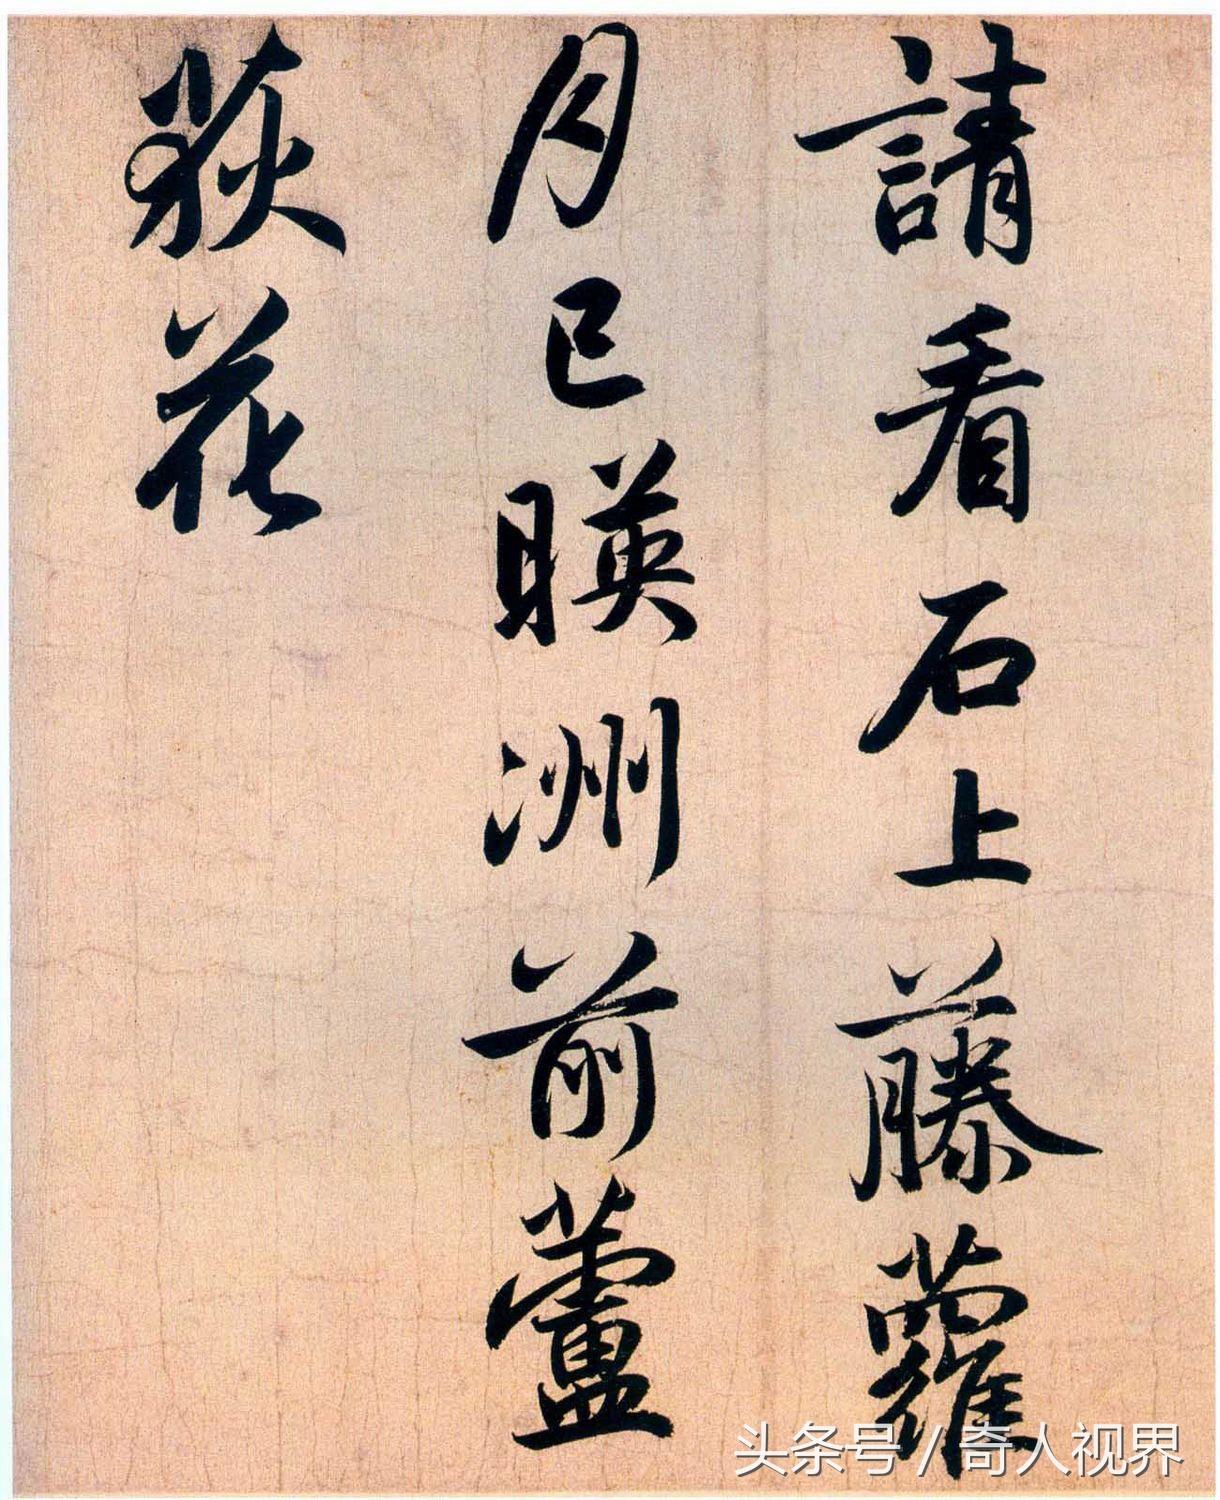 請看石上藤蘿
月已暎洲前蘆
荻花
头条号 / 奇人视界